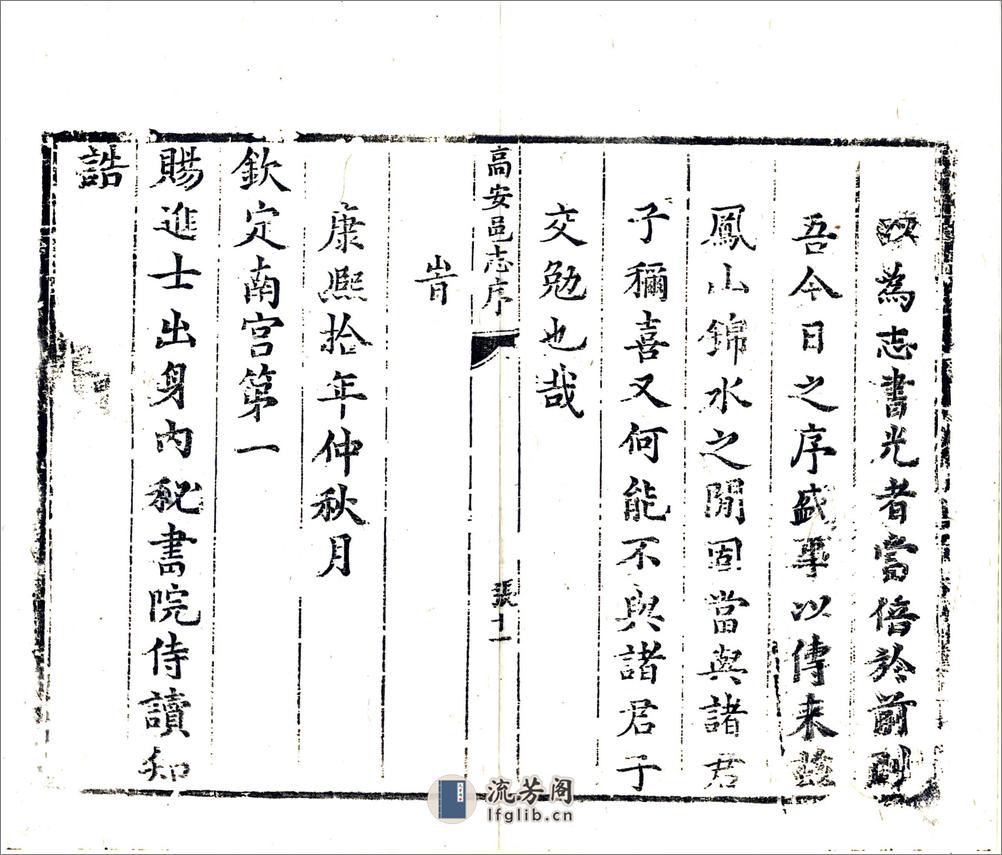 次為志書光者當倍於前則
吾今日之序盛事以傳來茲
鳳山錦水之閒固當與諸君
子稱喜又何能不與諸君子
交勉也哉
高安邑志序
張十一
旹
康熙拾年仲秋月
欽定南宮第一
賜進士出身內秘書院侍讀知
誥
流芳阁
lfglib.cn